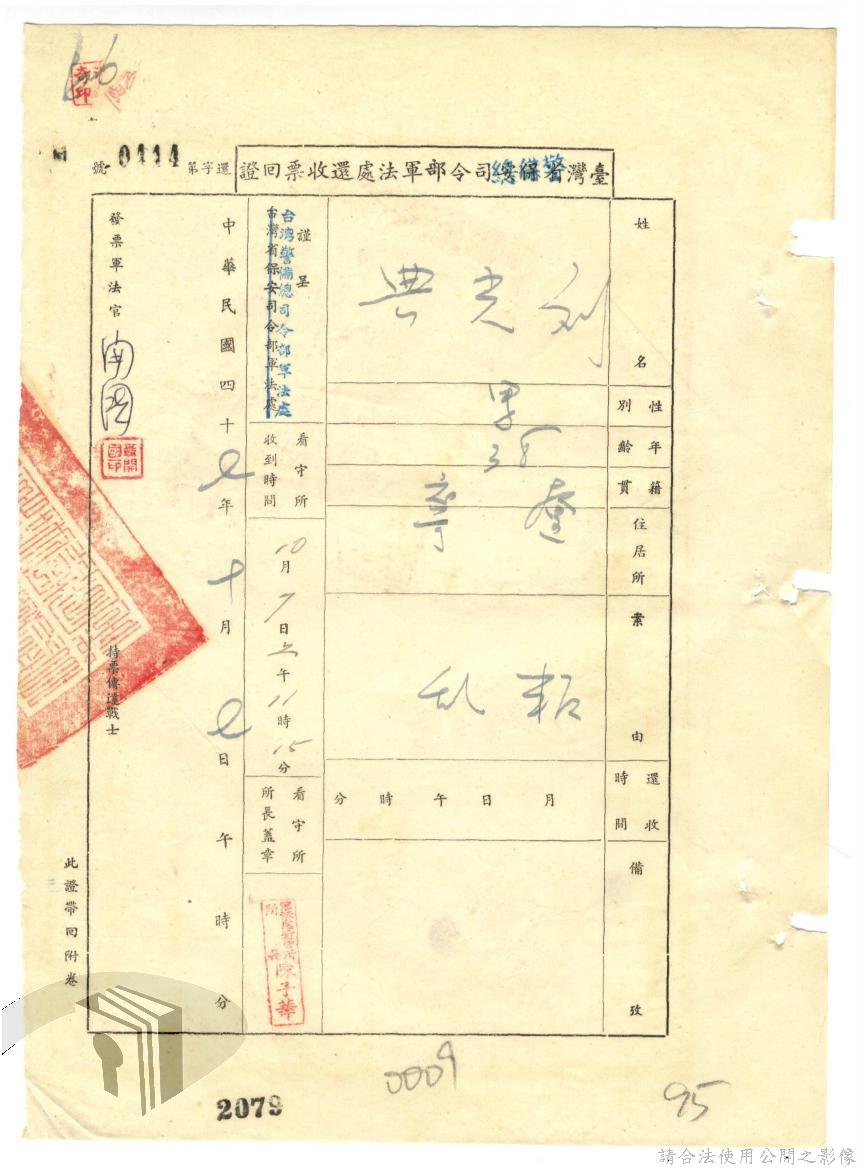 還字第0444號
臺灣警備總司令部軍法處還收票回證
姓名
劉光典
性別
男
年齡
38
籍貫
住居所
案由
叛乱
還收時間
月 日 午 時 分
備攷
謹呈
台灣警備總司令部軍法處
台灣省保安司令部軍法處
看守所收到時間
10月7日上午11時15分
看守所所長蓋章
陳子華
中華民國四十七年十月七日 午 時 分
發票軍法官
持票傳達戰士
此證帶回附卷
0009
95
2079
請合法使用公開之影像